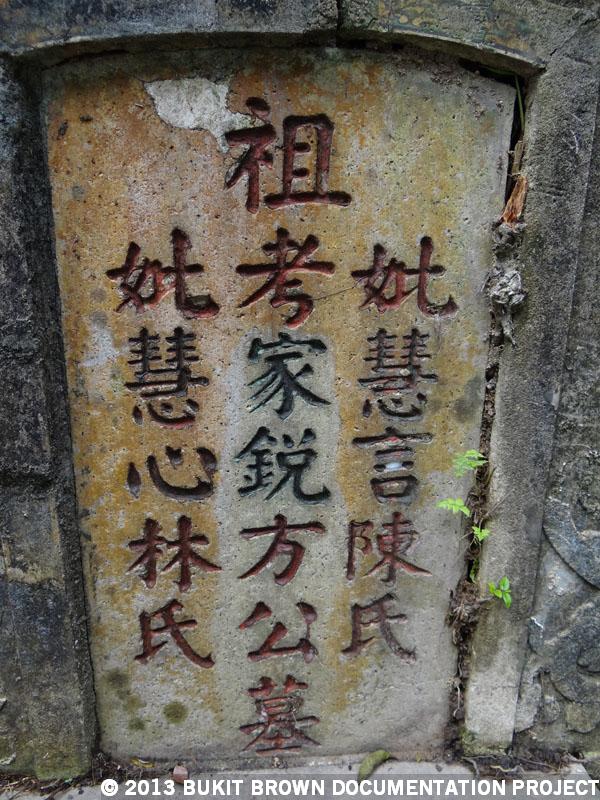 妣慧言陳氏
祖考家鋭方公墓
妣慧心林氏
© 2013 BUKIT BROWN DOCUMENTATION PROJECT